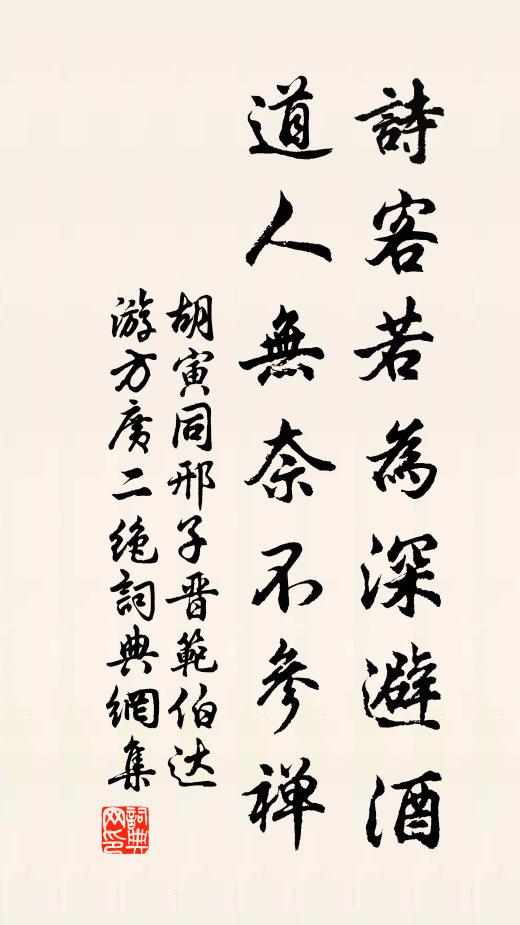 詩客若為深避酒
道人無奈不參禅
胡寅同邢子晋範伯达
游方廣二绝詞典網集
詞典
网印